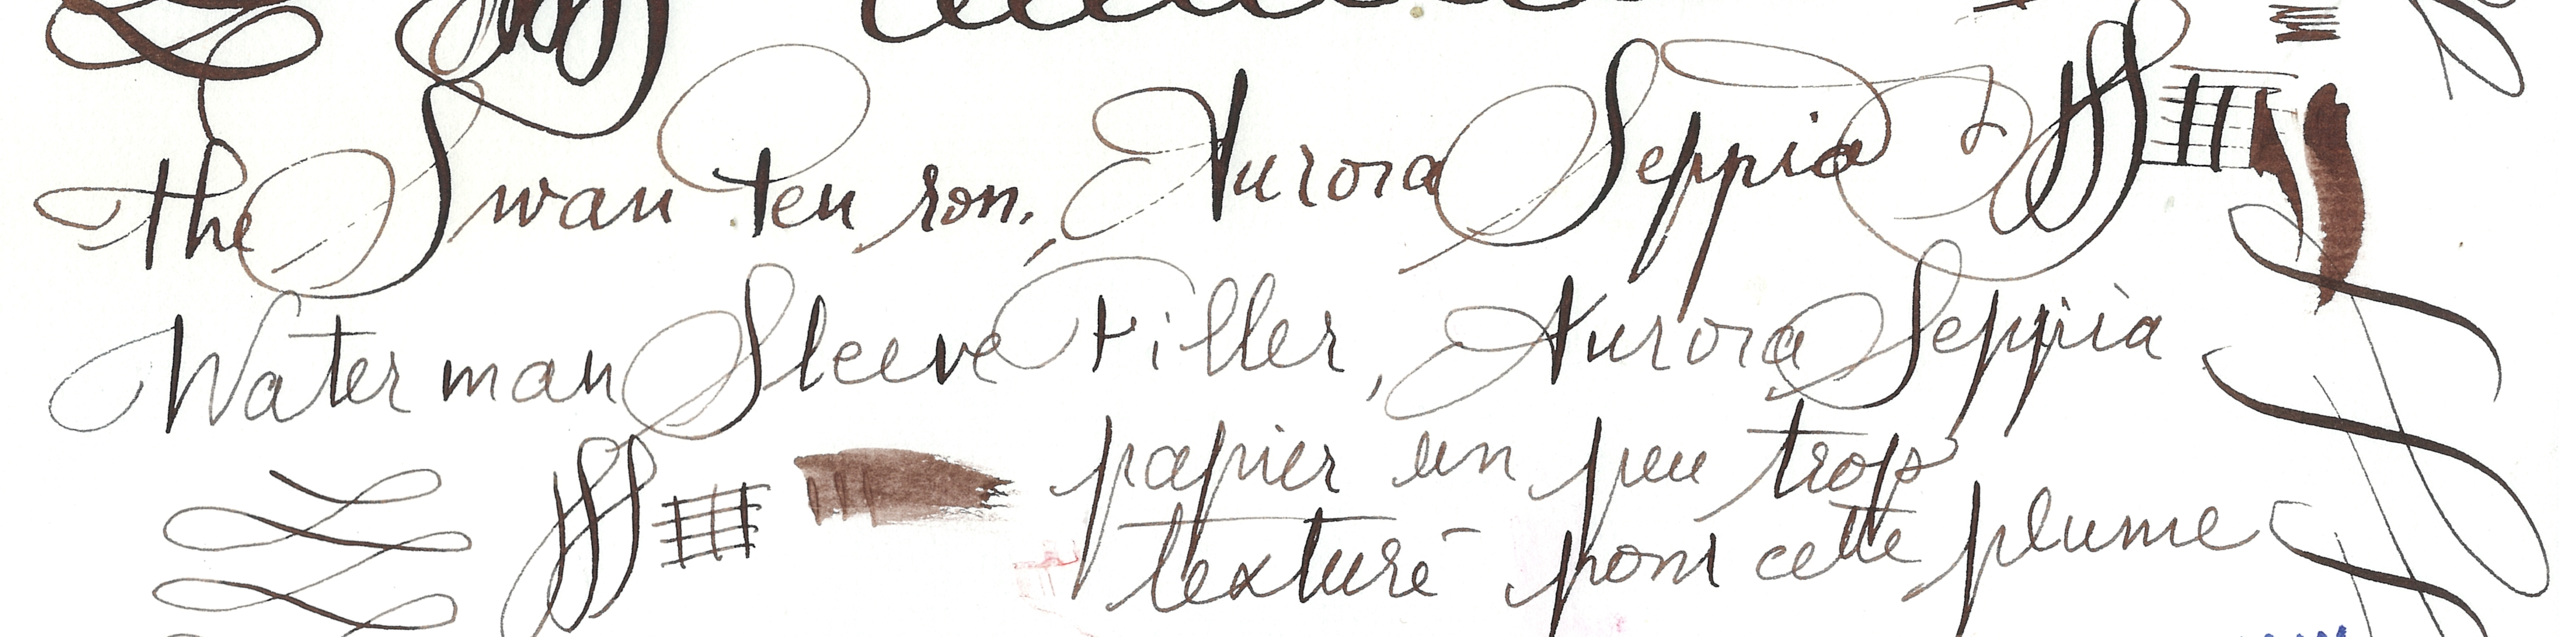 the Swan Pen ron, Aurora Seppia
Waterman Sleeve Filler, Aurora Seppia
papier un peu trop
texturé pour cette plume